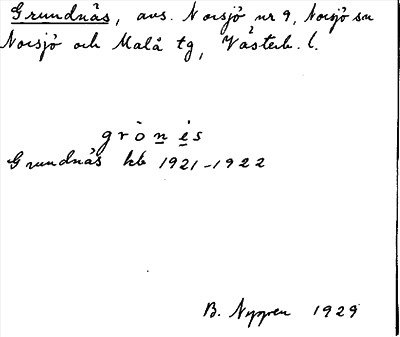 Grundnäs, avs. Norsjö nr 9, Norsjö sn
Norsjö och Malå tg, Västerb. l.
grònės
Grundnås kb 1921-1922
B. Nygren 1929